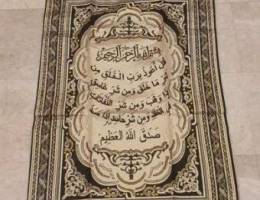 بسم الله الرحمن الرحيم
قل أعوذ برب الفلق من
شر ما خلق ومن شر غاسق
إذا وقب ومن شر النفاثات
في العقد ومن شر حاسد إذا حسد
صدق الله العظيم